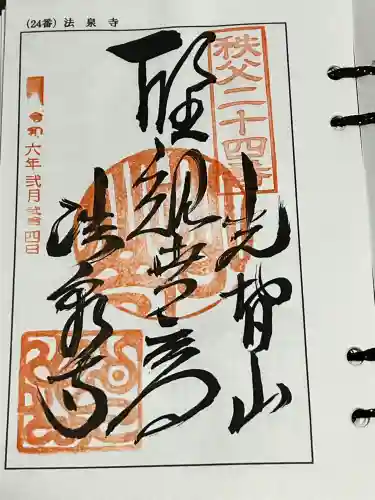 (24番) 法 泉 寺
秩父二十四番
光智山
聖観世音
法泉寺
令和六年弐月弐拾四日